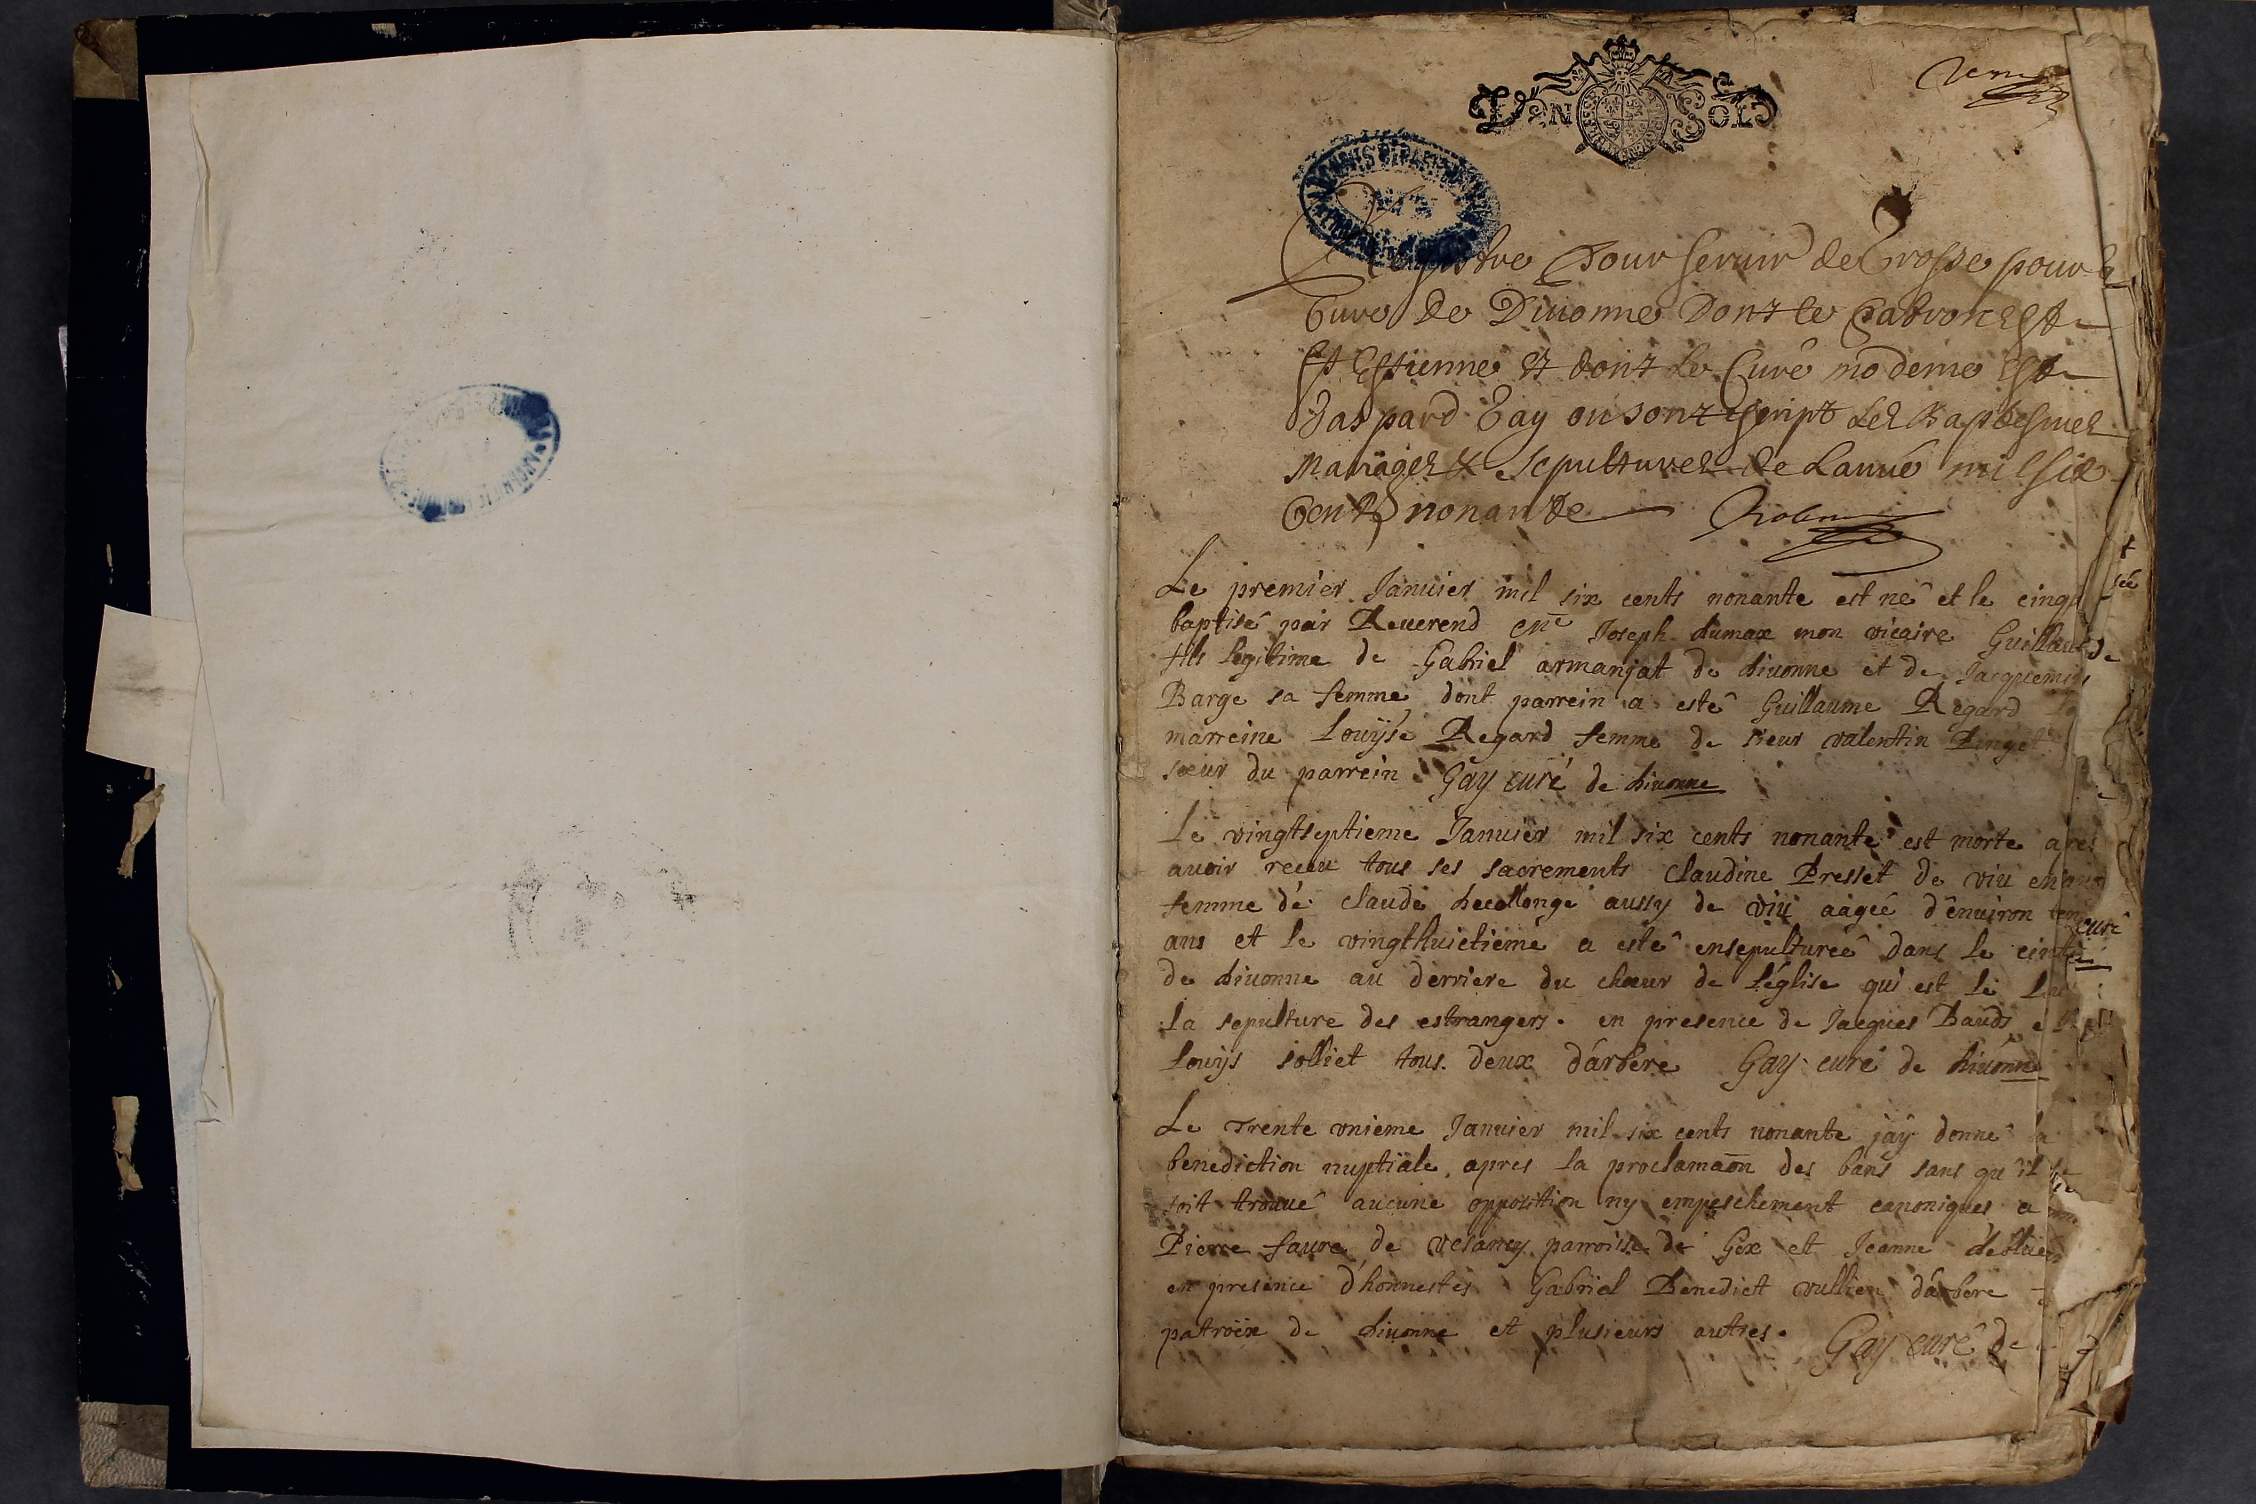 VN SOL
Registre pour servir de Grosse pour la
Cure de Diuonne Dont le Patron est
St Estienne et dont le Curé moderne est
Gaspard Gay ou sont escript les Baptesmes
Mariages & Sepultures de Lanné mil six
Cents nonante
Le premier Januier mil six cents nonante est né et le cinq
baptisé par Reuerend Joseph dumax mon vicaire Guillau
fils legitime de Gabriel armanjat de diuonne et de Jacquemi
Barge sa femme dont parrein a esté Guillaume Regard
marreine Louyse Regard femme de sieur valentin Pinget
soeur du parrein Gay curé de diuonne
Le vingtseptieme Januier mil six cents nonante est morte apres
auoir receu tous ses sacrements Claudine Presset de viu en
femme de Claude decollonge aussy de viu aagée d'enuiron
ans et le vingthuictieme a esté ensepulturée dans le cim
de diuonne au derriere du choeur de l'église qui est le
la sepulture des estrangers. en presence de Jacques Bauds
Louys solliet tous deux d'arbere Gay curé de diuonne
Le trente vnieme Januier mil six cents nonante jay donné la
benediction nuptiale apres la proclamaon des bans sans qu'il se
soit trouué aucune opposition ny empeschement canoniques a
Pierre faure de vesancy parroisse de Gex et Jeanne
en presence d'honnestes Gabriel Benedict vullien d'arbere
patroix de diuonne et plusieurs autres. Gay curé de
curé